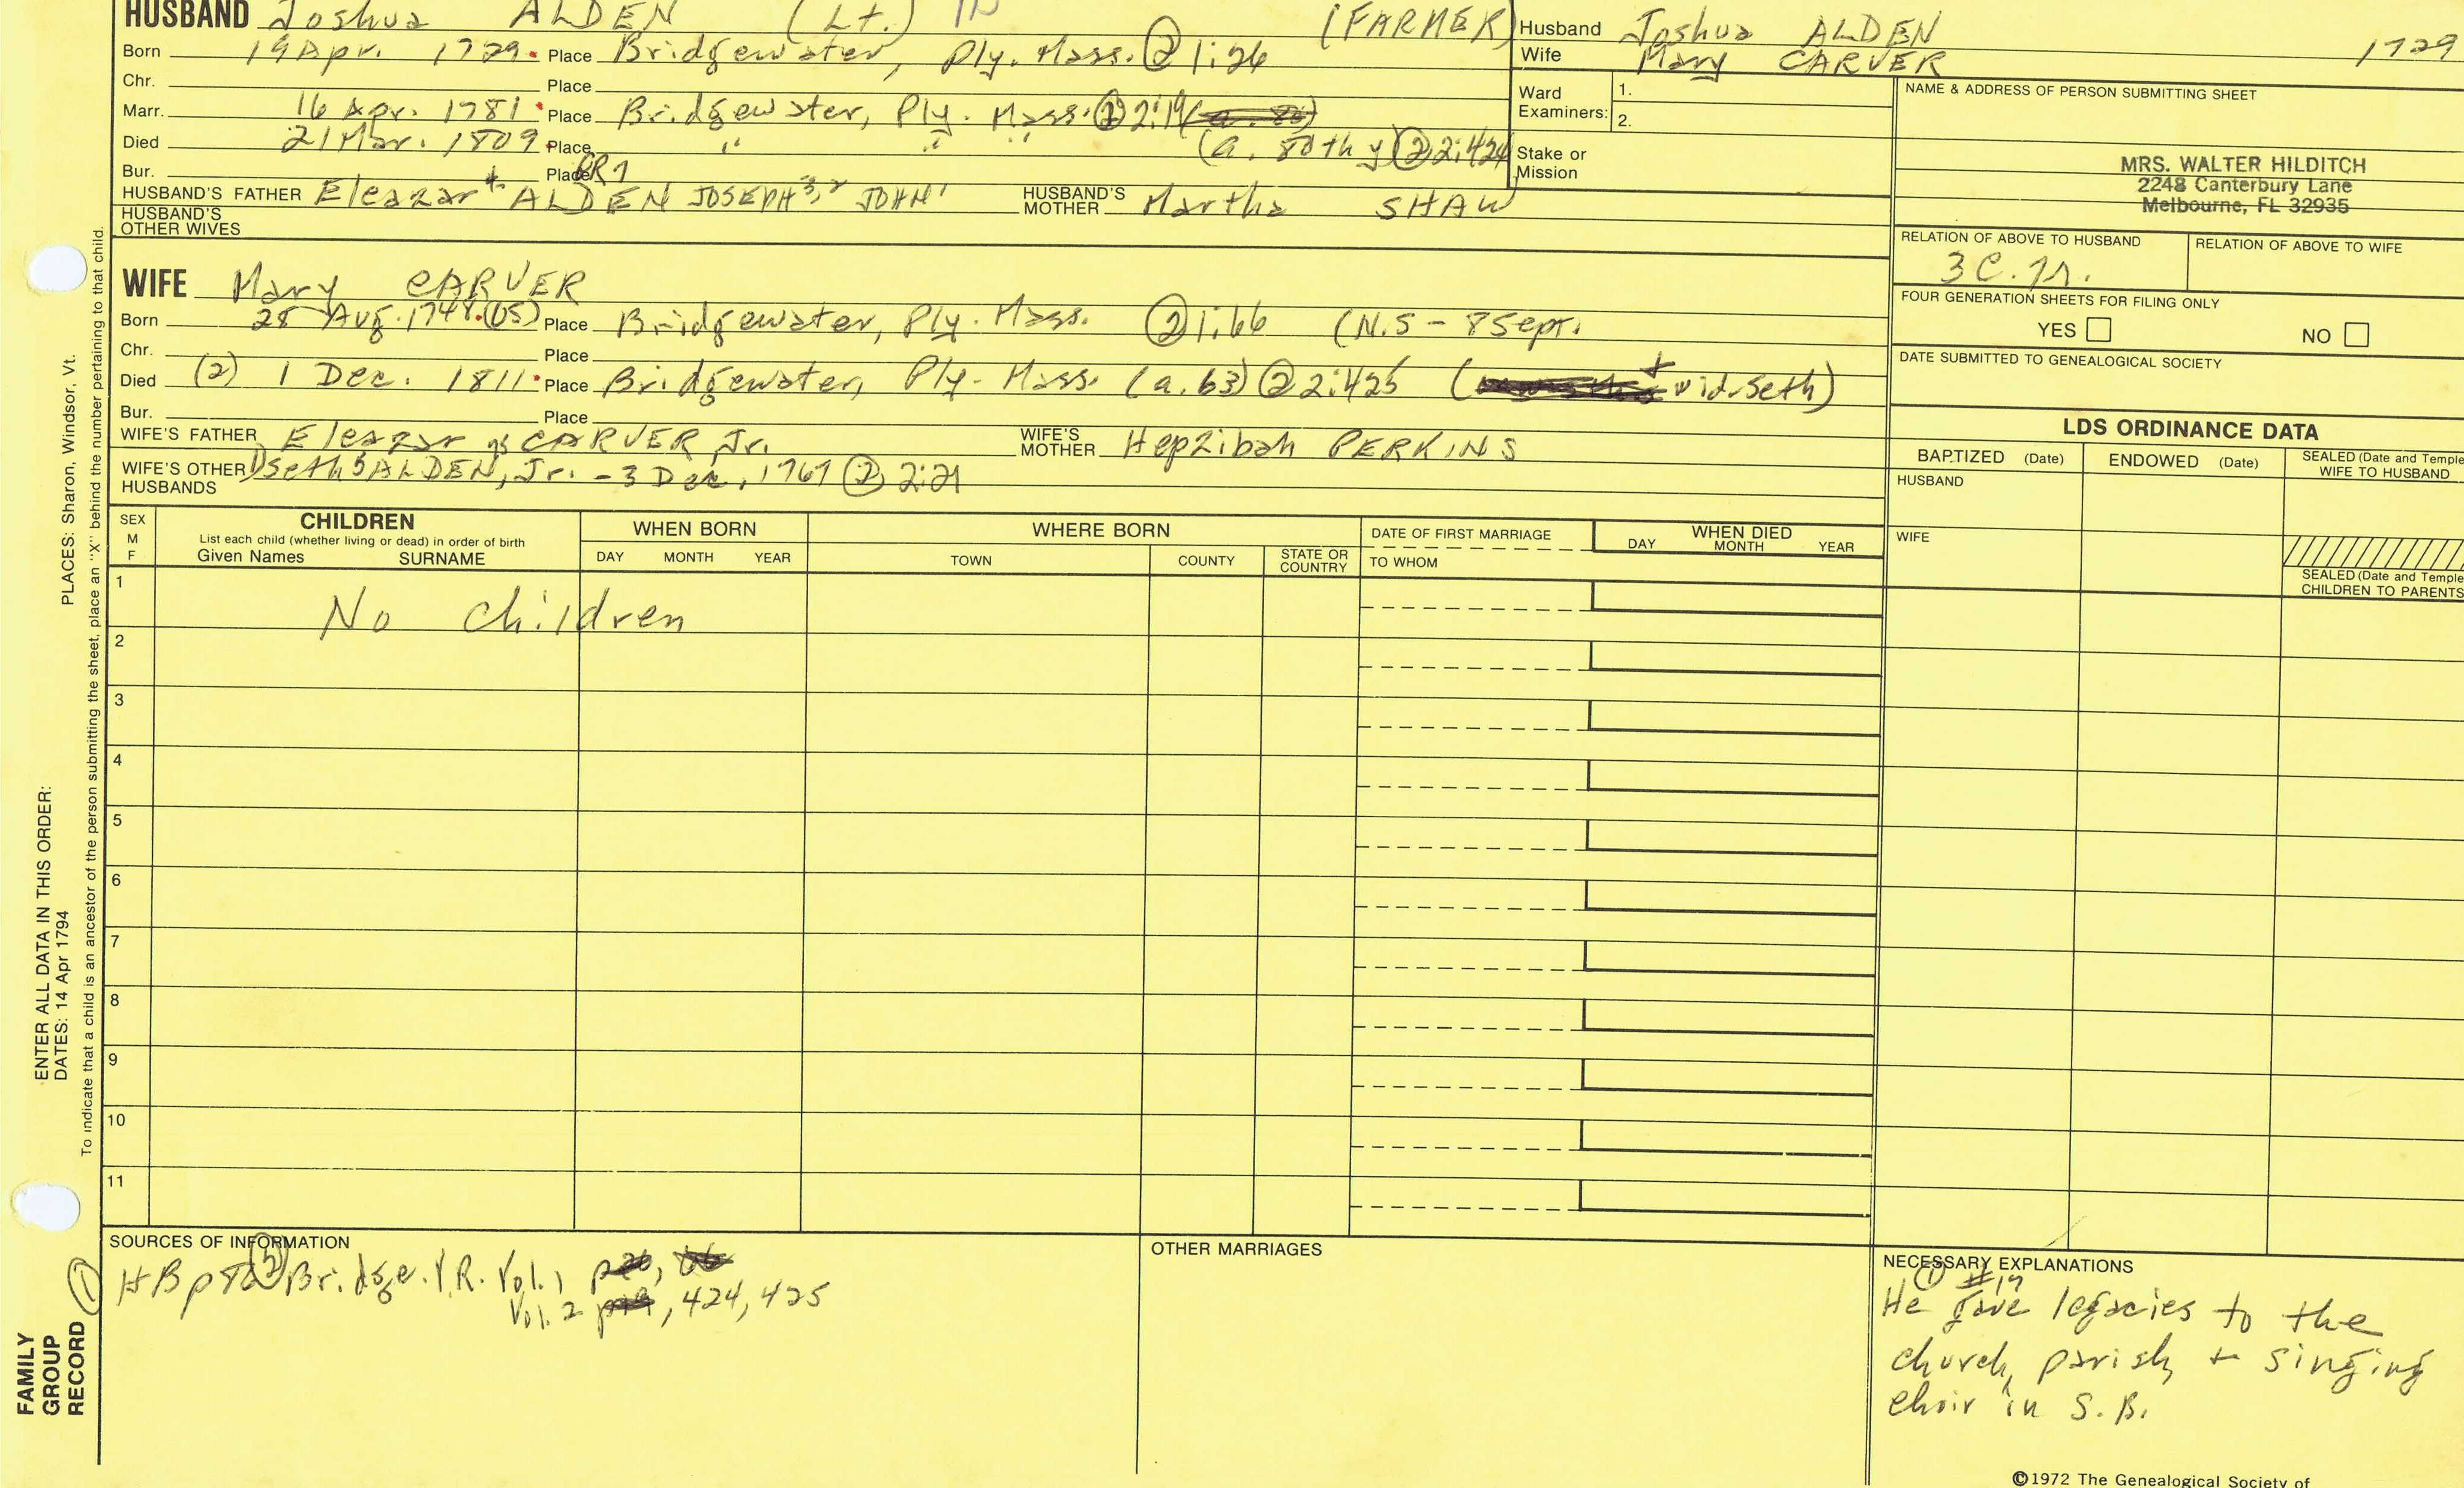 HUSBAND Joshua ALDEN (Lt.) IN (FARMER)
Born 19 Apr. 1729. Place Bridgewater, Ply. Mass. ② 1:26
Chr. Place
Marr. 16 Apr. 1781. Place Bridgewater, Ply. Mass. ② 2:19
Died 21 Mar. 1809. Place " " " (a. 80th y) ② 2:424
Bur. Place GR1
HUSBAND'S FATHER Eleazar⁴ ALDEN JOSEPH³,² JOHN¹ HUSBAND'S MOTHER Martha SHAW
HUSBAND'S OTHER WIVES
Husband Joshua ALDEN 1729
Wife Mary CARVER
Ward Examiners: 1.
2.
Stake or Mission
NAME & ADDRESS OF PERSON SUBMITTING SHEET
MRS. WALTER HILDITCH
2248 Canterbury Lane
Melbourne, FL 32935
RELATION OF ABOVE TO HUSBAND RELATION OF ABOVE TO WIFE
3C.
FOUR GENERATION SHEETS FOR FILING ONLY
YES NO
DATE SUBMITTED TO GENEALOGICAL SOCIETY
WIFE Mary CARVER
Born 28 Aug. 1748. (OS) Place Bridgewater, Ply. Mass. ② 1:66 (N.S - 8 Sept.
Chr. Place
Died (2) 1 Dec. 1811. Place Bridgewater, Ply. Mass. (a. 63) ② 2:425 (wid. Seth)
Bur. Place
WIFE'S FATHER Eleazar CARVER, Jr. WIFE'S MOTHER Hepzibah PERKINS
WIFE'S OTHER HUSBANDS 1) Seth⁵ ALDEN, Jr. - 3 Dec. 1767 ② 2:21
LDS ORDINANCE DATA
BAPTIZED (Date) ENDOWED (Date) SEALED (Date and Temple
WIFE TO HUSBAND
HUSBAND
WIFE
SEALED (Date and Temple
CHILDREN TO PARENTS
SEX M F
CHILDREN
List each child (whether living or dead) in order of birth
Given Names SURNAME
WHEN BORN
DAY MONTH YEAR
WHERE BORN
TOWN COUNTY STATE OR COUNTRY
DATE OF FIRST MARRIAGE
TO WHOM
WHEN DIED
DAY MONTH YEAR
1
No Children
2
3
4
5
6
7
8
9
10
11
SOURCES OF INFORMATION
① HB p ② Bridge. V.R. Vol. 1
Vol. 2, 424, 425
OTHER MARRIAGES
NECESSARY EXPLANATIONS
① #17
He gave legacies to the
church, parish, + singing
choir in S. B.
©1972 The Genealogical Society of
PLACES: Sharon, Windsor, Vt.
ENTER ALL DATA IN THIS ORDER:
DATES: 14 Apr 1794
To indicate that a child is an ancestor of the person submitting the sheet, place an "X" behind the number pertaining to that child.
FAMILY
GROUP
RECORD